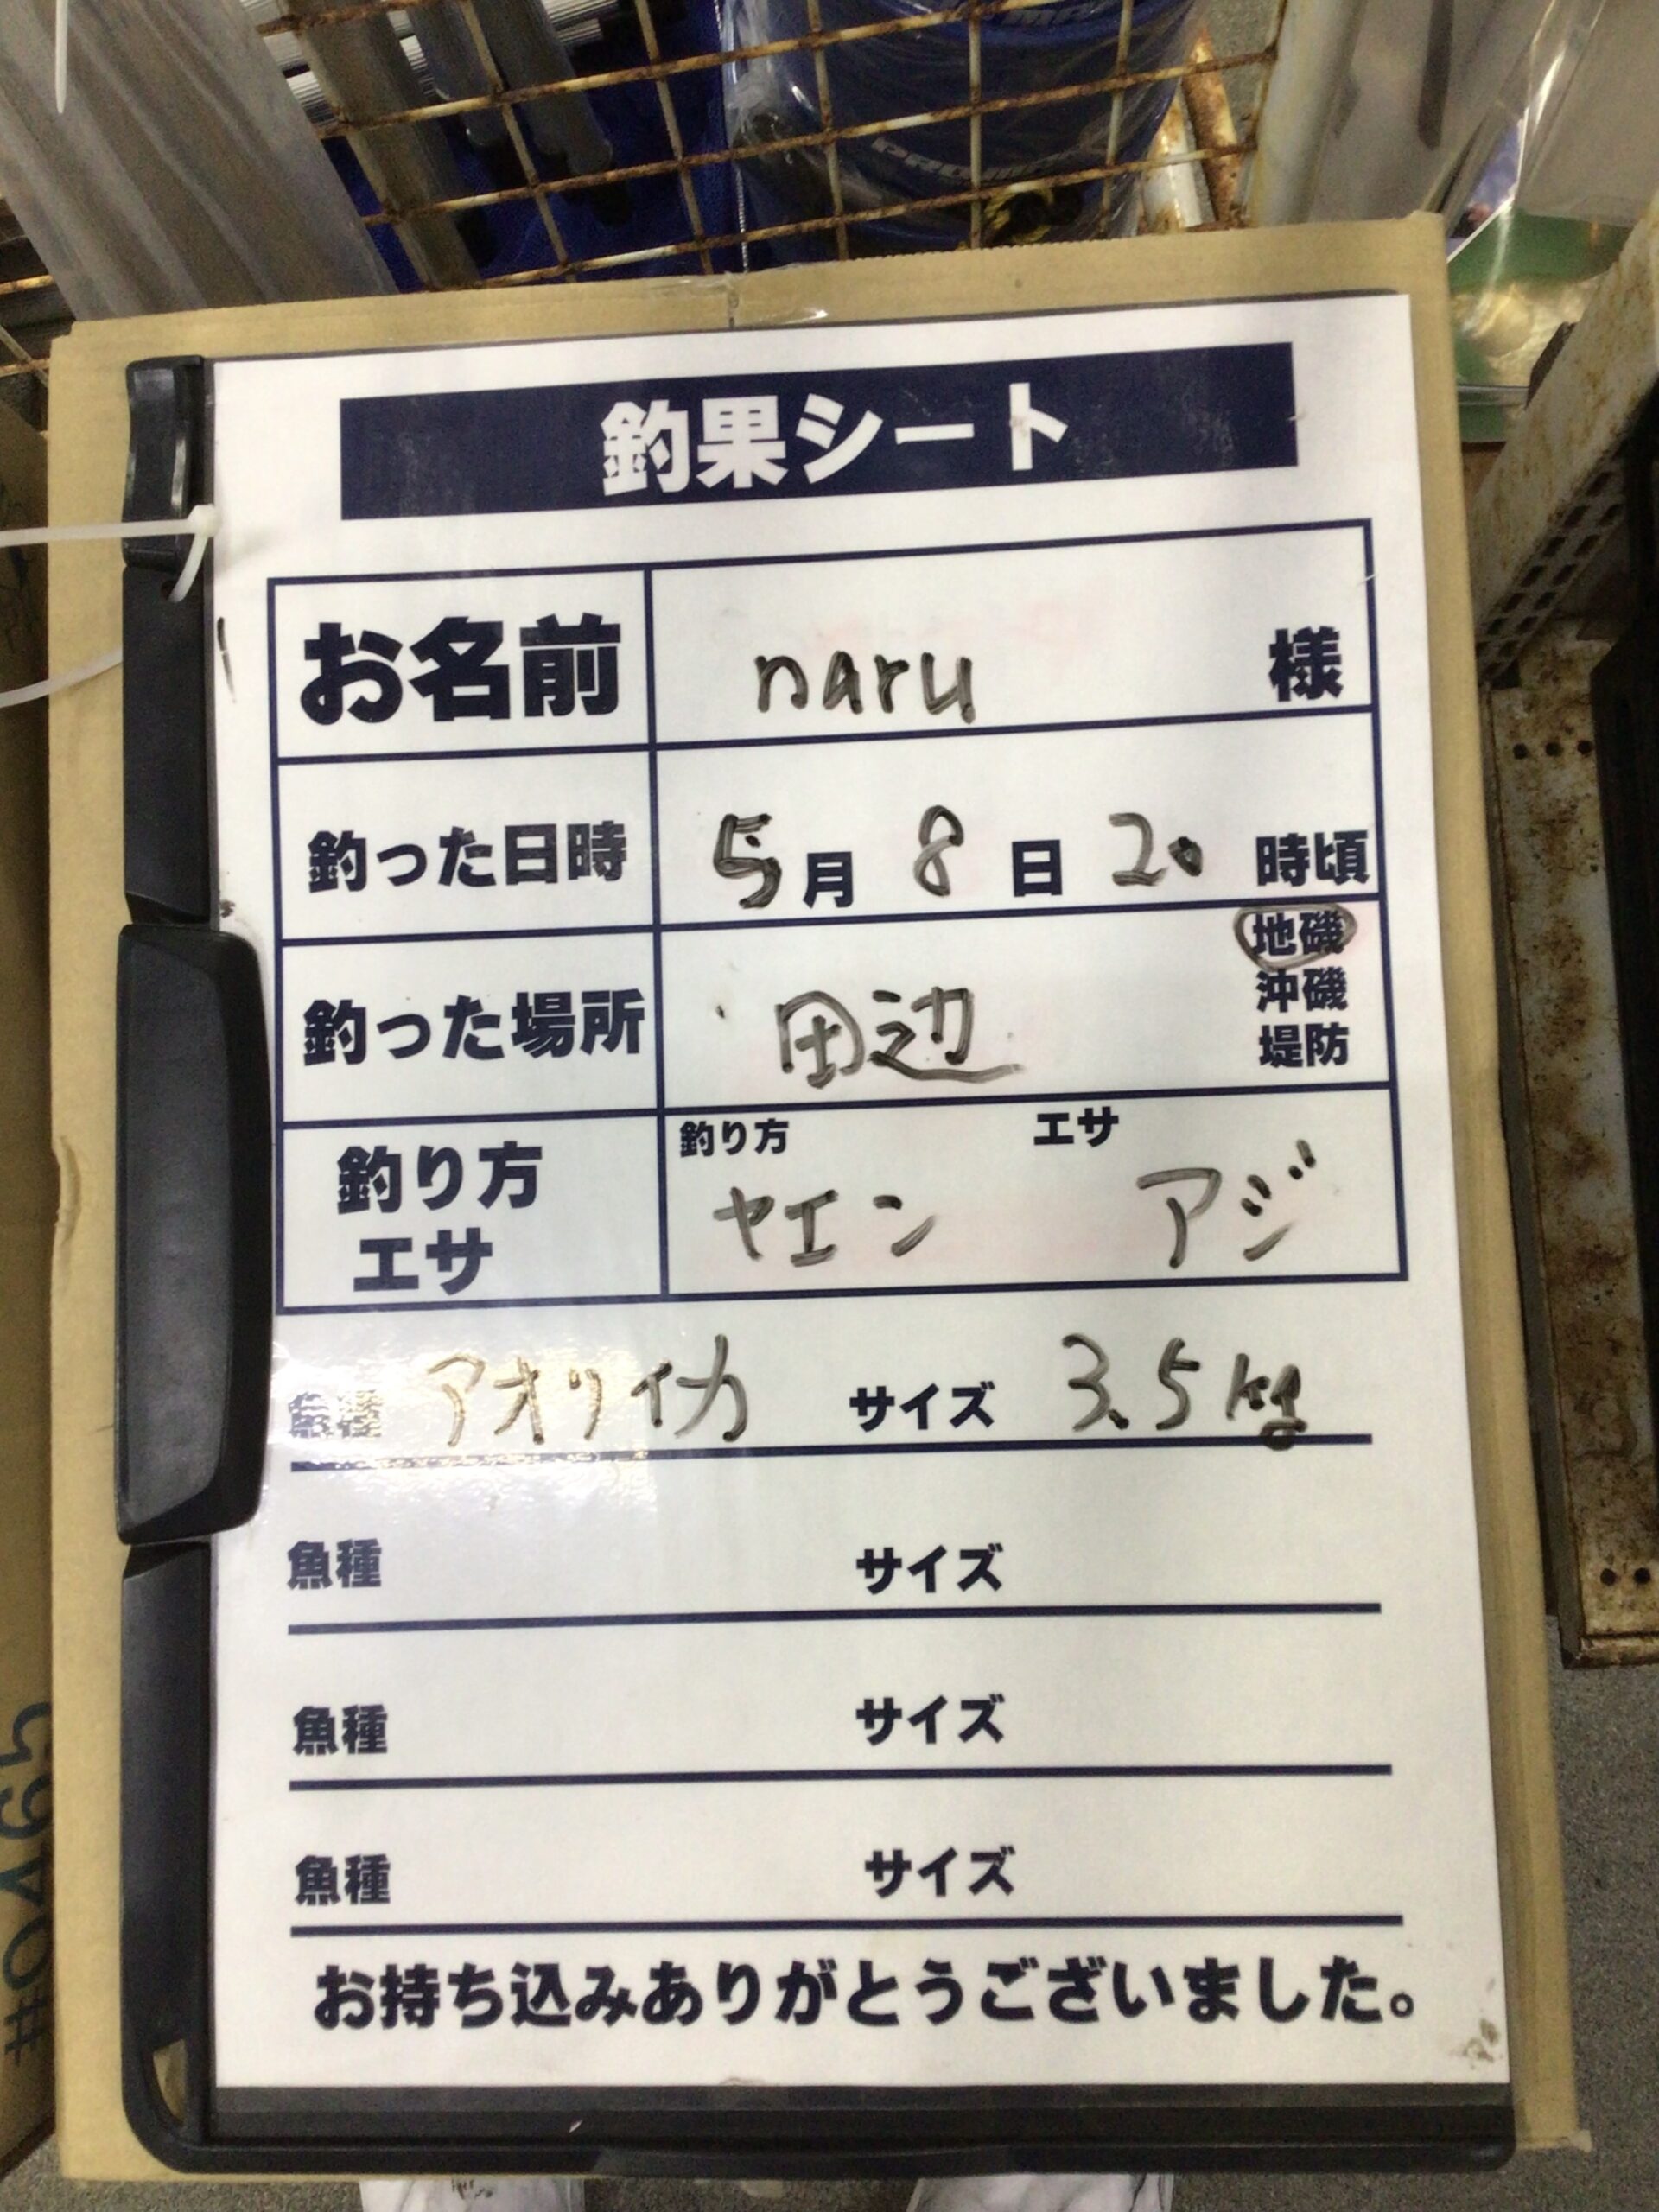 釣果シート
お名前 naru 様
釣った日時 5月 8日 20時頃
釣った場所 田辺 地磯
沖磯
堤防
釣り方 エサ
釣り方 ヤエン アジ
エサ
魚種 アオリイカ サイズ 3.5kg
魚種 サイズ
魚種 サイズ
魚種 サイズ
お持ち込みありがとうございました。